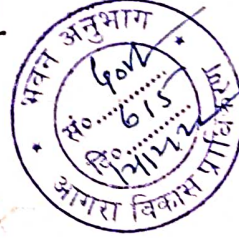 भवन अनुभाग
सं०.......... 615
दि०..........
आगरा विकास प्राधिकरण